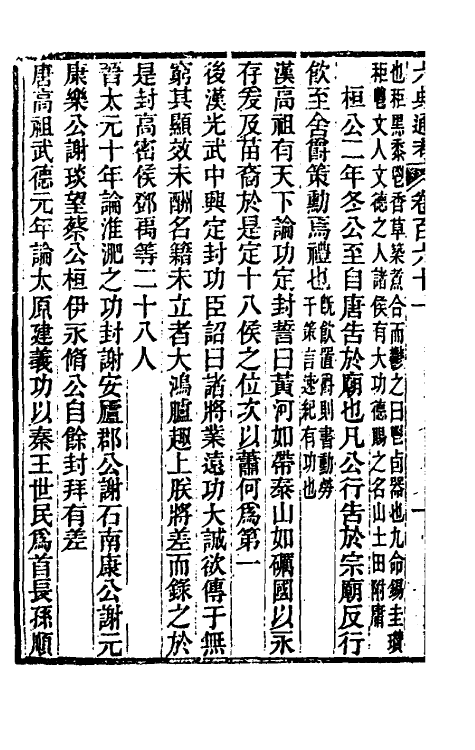 六典通考 卷百六十一
也秬黑黍鬯香草築煮合而鬱之曰鬯卣器也九命錫圭瓚
秬鬯文人文德之人諸侯有大功德賜之名山土田附庸
桓公二年冬公至自唐告於廟也凡公行告於宗廟反行
飲至舍爵策勳焉禮也既飲置爵則書勳勞
于策言速紀有功也
漢高祖有天下論功定封誓曰黃河如帶泰山如礪國以永
存爰及苗裔於是定十八侯之位次以蕭何爲第一
後漢光武中興定封功臣詔曰諸將業遠功大誠欲傳于無
窮其顯效未酬名籍未立者大鴻臚趣上朕將差而錄之於
是封高密侯鄧禹等二十八人
晉太元十年論淮淝之功封謝安廬郡公謝石南康公謝元
康樂公謝琰望蔡公桓伊永脩公自餘封拜有差
唐高祖武德元年論太原建義功以秦王世民爲首長孫順